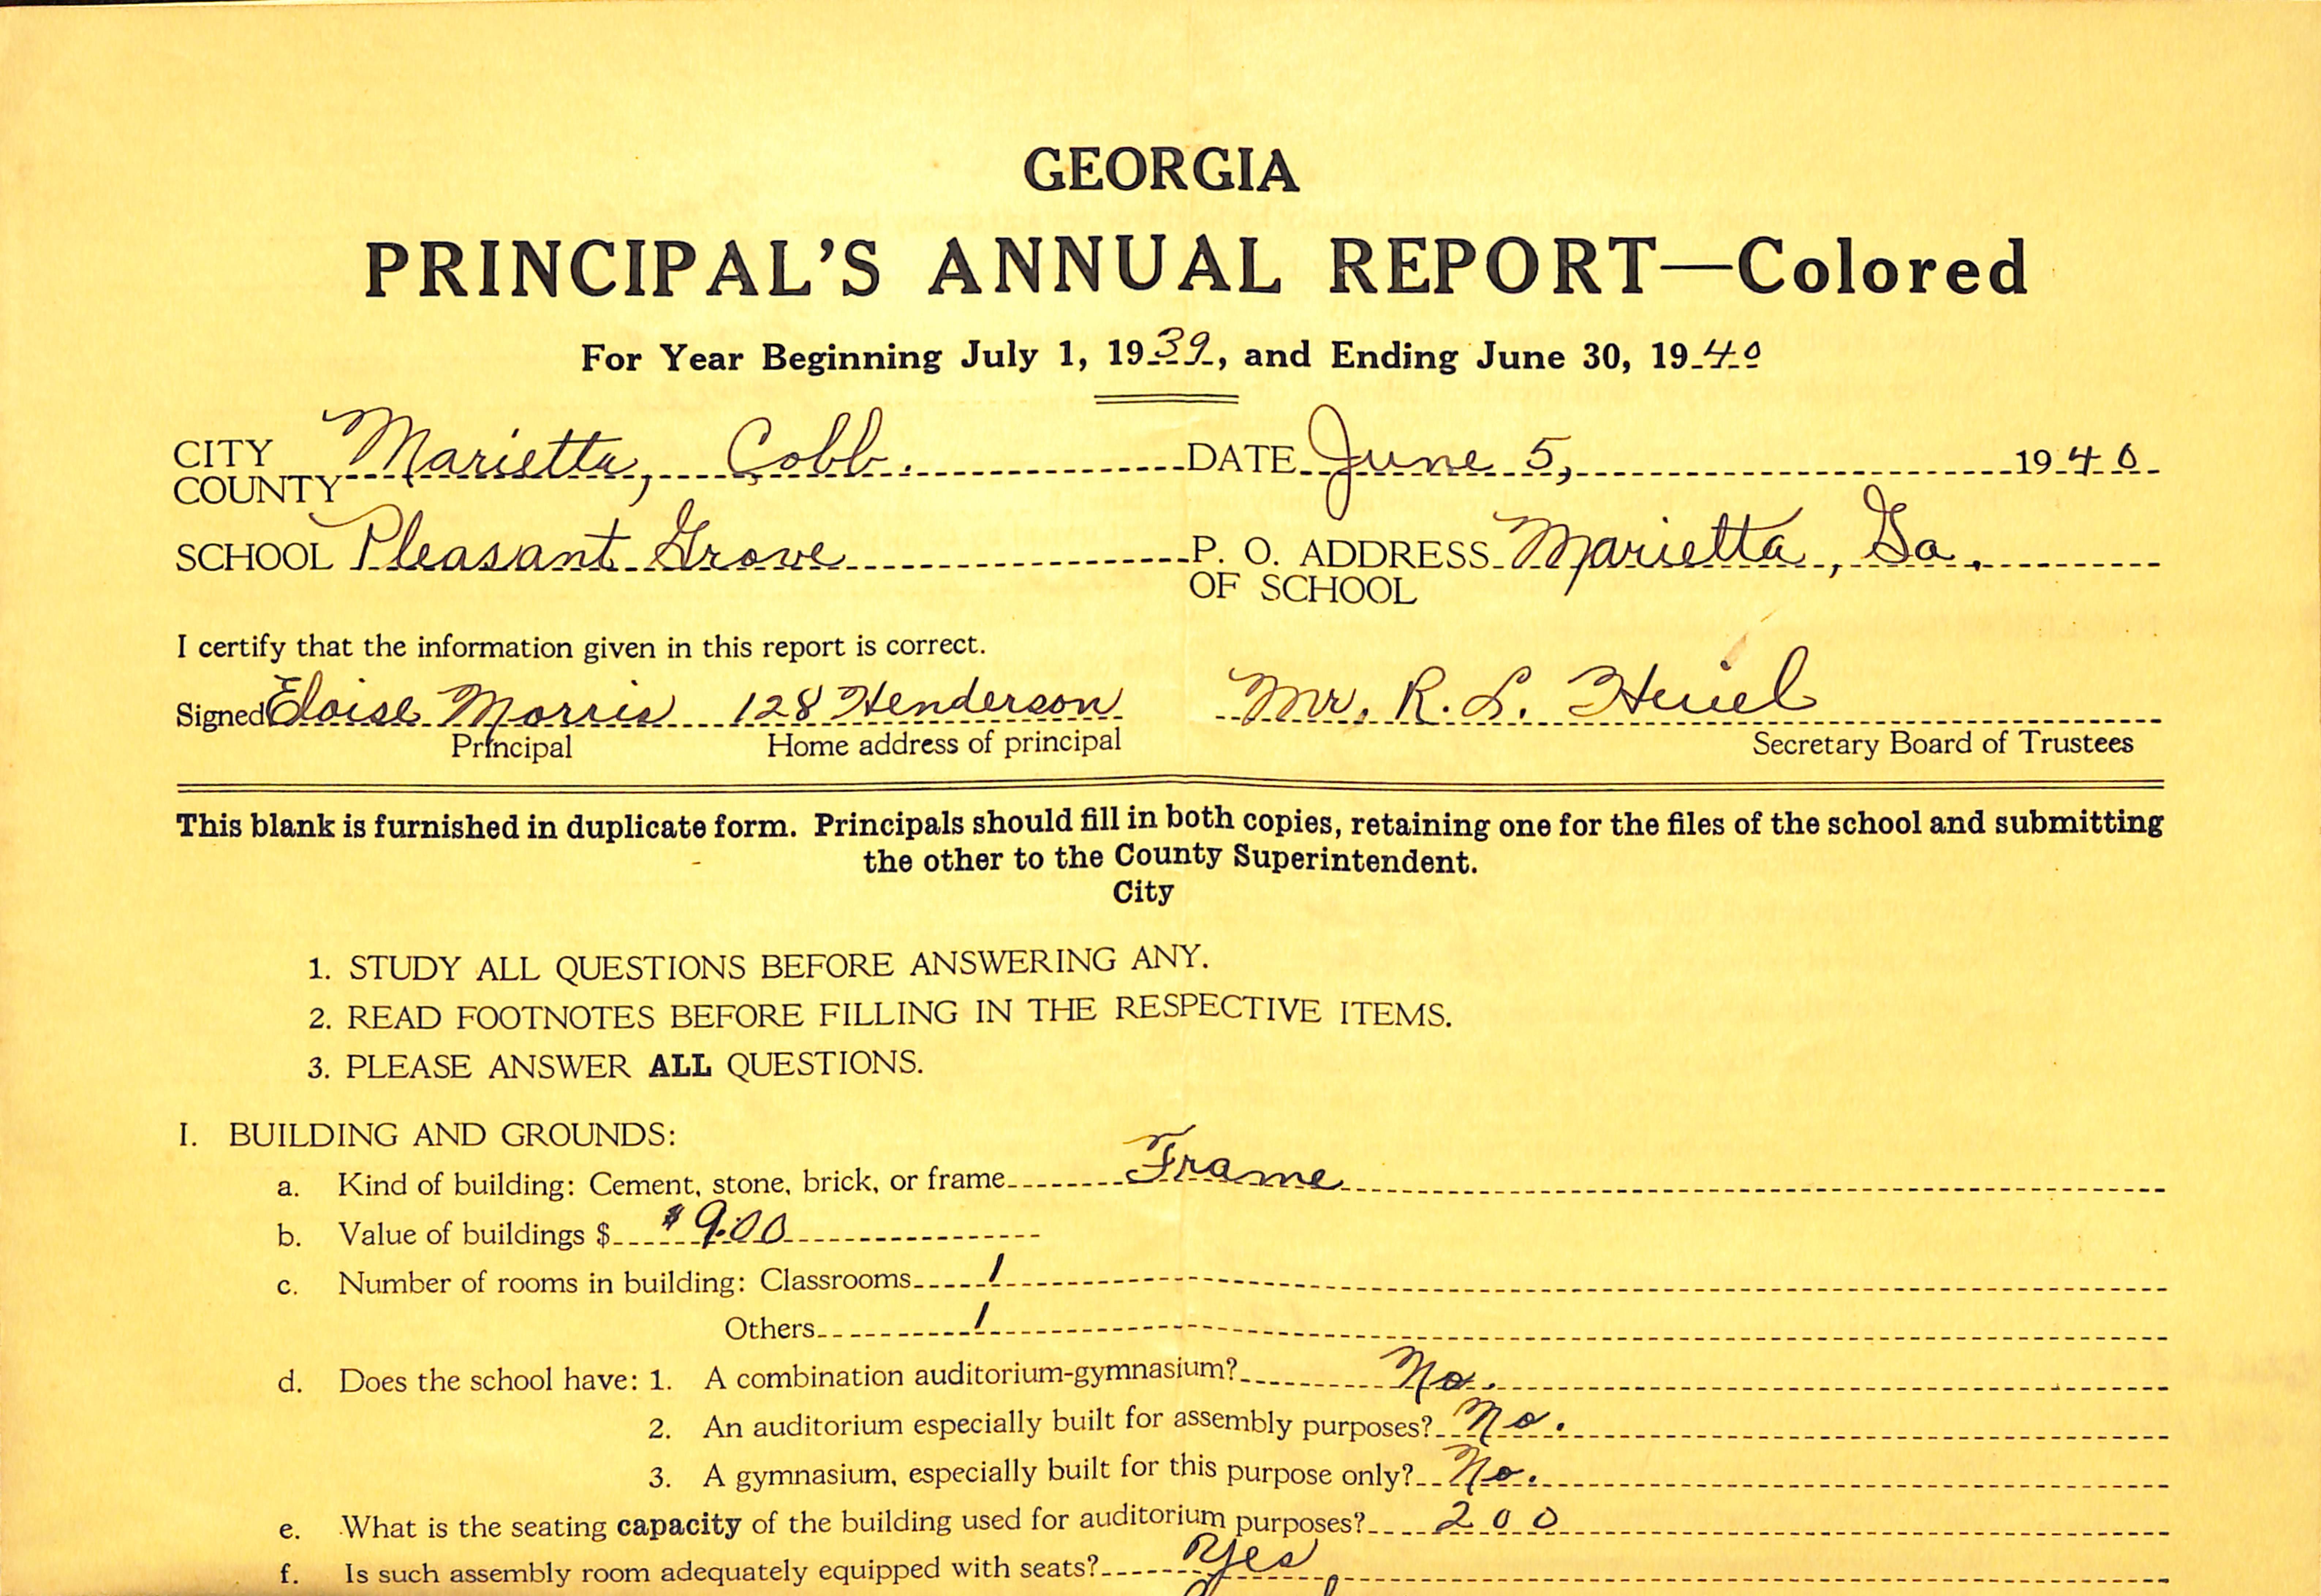 GEORGIA
PRINCIPAL'S ANNUAL REPORT—Colored
For Year Beginning July 1, 1939, and Ending June 30, 1940
CITY COUNTY Marietta, Cobb. DATE June 5, 1940
SCHOOL Pleasant Grove P. O. ADDRESS OF SCHOOL Marietta, Ga.
I certify that the information given in this report is correct.
Signed Eloise Morris 128 Henderson Mr. R. L.
Principal Home address of principal Secretary Board of Trustees
This blank is furnished in duplicate form. Principals should fill in both copies, retaining one for the files of the school and submitting
the other to the County Superintendent.
City
1. STUDY ALL QUESTIONS BEFORE ANSWERING ANY.
2. READ FOOTNOTES BEFORE FILLING IN THE RESPECTIVE ITEMS.
3. PLEASE ANSWER ALL QUESTIONS.
I. BUILDING AND GROUNDS:
a. Kind of building: Cement, stone, brick, or frame Frame
b. Value of buildings $ $900
c. Number of rooms in building: Classrooms 1
Others 1
d. Does the school have: 1. A combination auditorium-gymnasium? No.
2. An auditorium especially built for assembly purposes? No.
3. A gymnasium, especially built for this purpose only? No.
e. What is the seating capacity of the building used for auditorium purposes? 200
f. Is such assembly room adequately equipped with seats? Yes